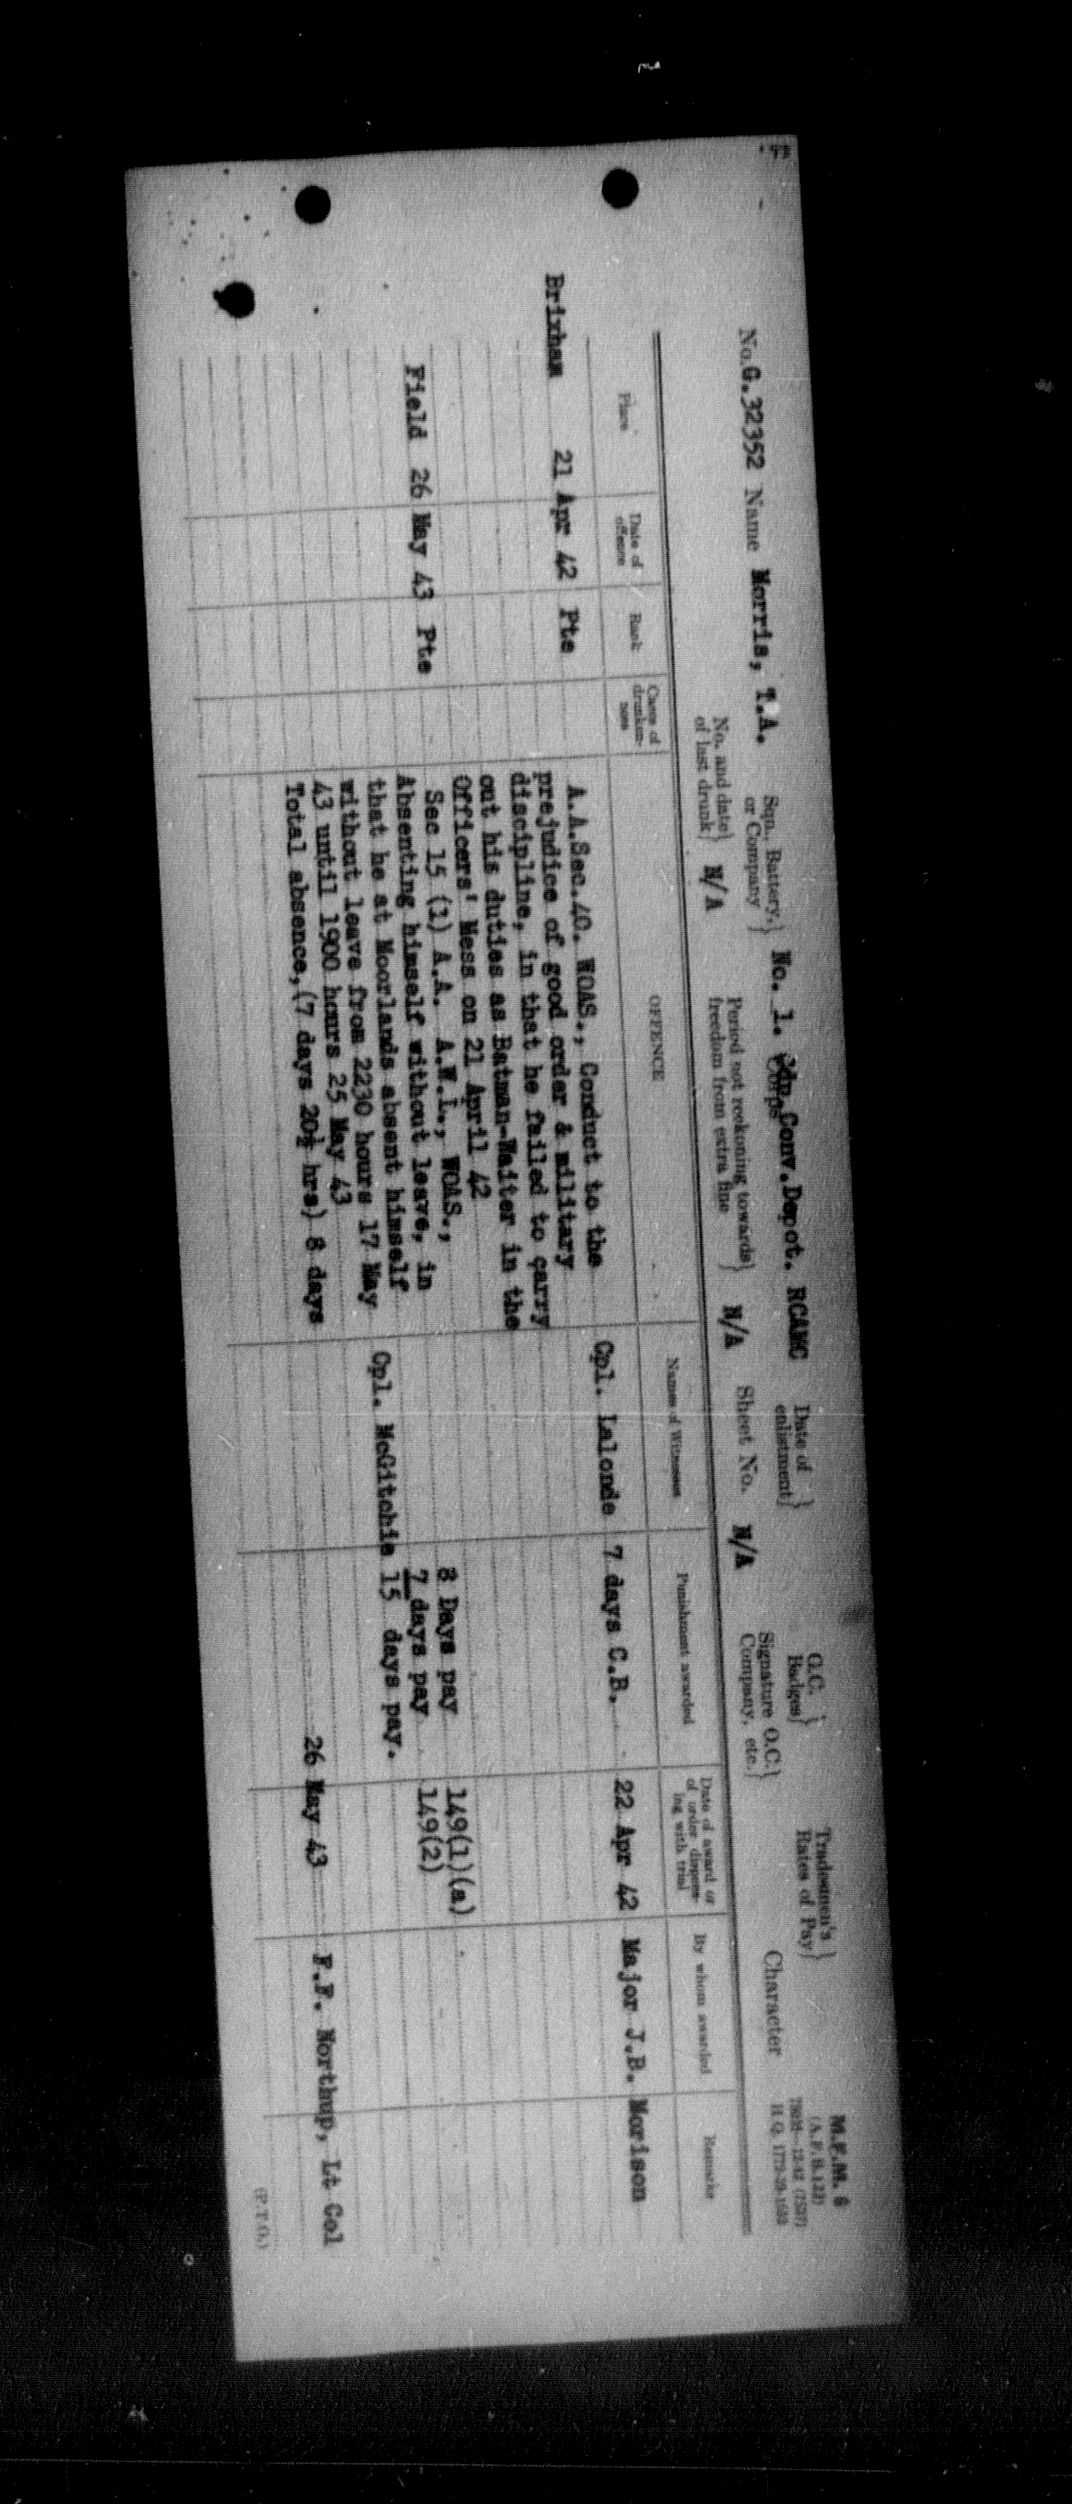 M.F.M. 6
(A.F.B. 122)
H.Q. 1772-39-1553
No. G.32352 Name Morris, T.A. Sqn., Battery, or Company} No. 1. Cdn.Conv.Depot. RCAMC Corps Date of enlistment} G.C. Badges} Tradesmen's Rates of Pay}
No. and date of last drunk} N/A Period not reckoning towards freedom from extra fine} N/A Sheet No. N/A Signature O.C. Company, etc.} Character
Place Date of offence Rank Cases of drunkenness OFFENCE Names of Witnesses Punishment awarded Date of award or of order dispensing with trial By whom awarded Remarks
Brixham 21 Apr 42 Pte A.A.Sec.40. WOAS., Conduct to the Cpl. Lalonde 7 days C.B. 22 Apr 42 Major J.B. Morison
prejudice of good order & military
discipline, in that he failed to carry
out his duties as Batman-Waiter in the
Officers' Mess on 21 April 42
Field 26 May 43 Pte Sec 15 (1) A.A. A.W.L., WOAS., 8 Days pay 149(1)(a)
Absenting himself without leave, in 7 days pay 149(2)
that he at Moorlands absent himself Cpl. McGitchie 15 days pay.
without leave from 2230 hours 17 May
43 until 1900 hours 25 May 43
Total absence,(7 days 20½ hrs) 8 days 26 May 43 F.F. Northup, Lt Col
(P.T.O.)